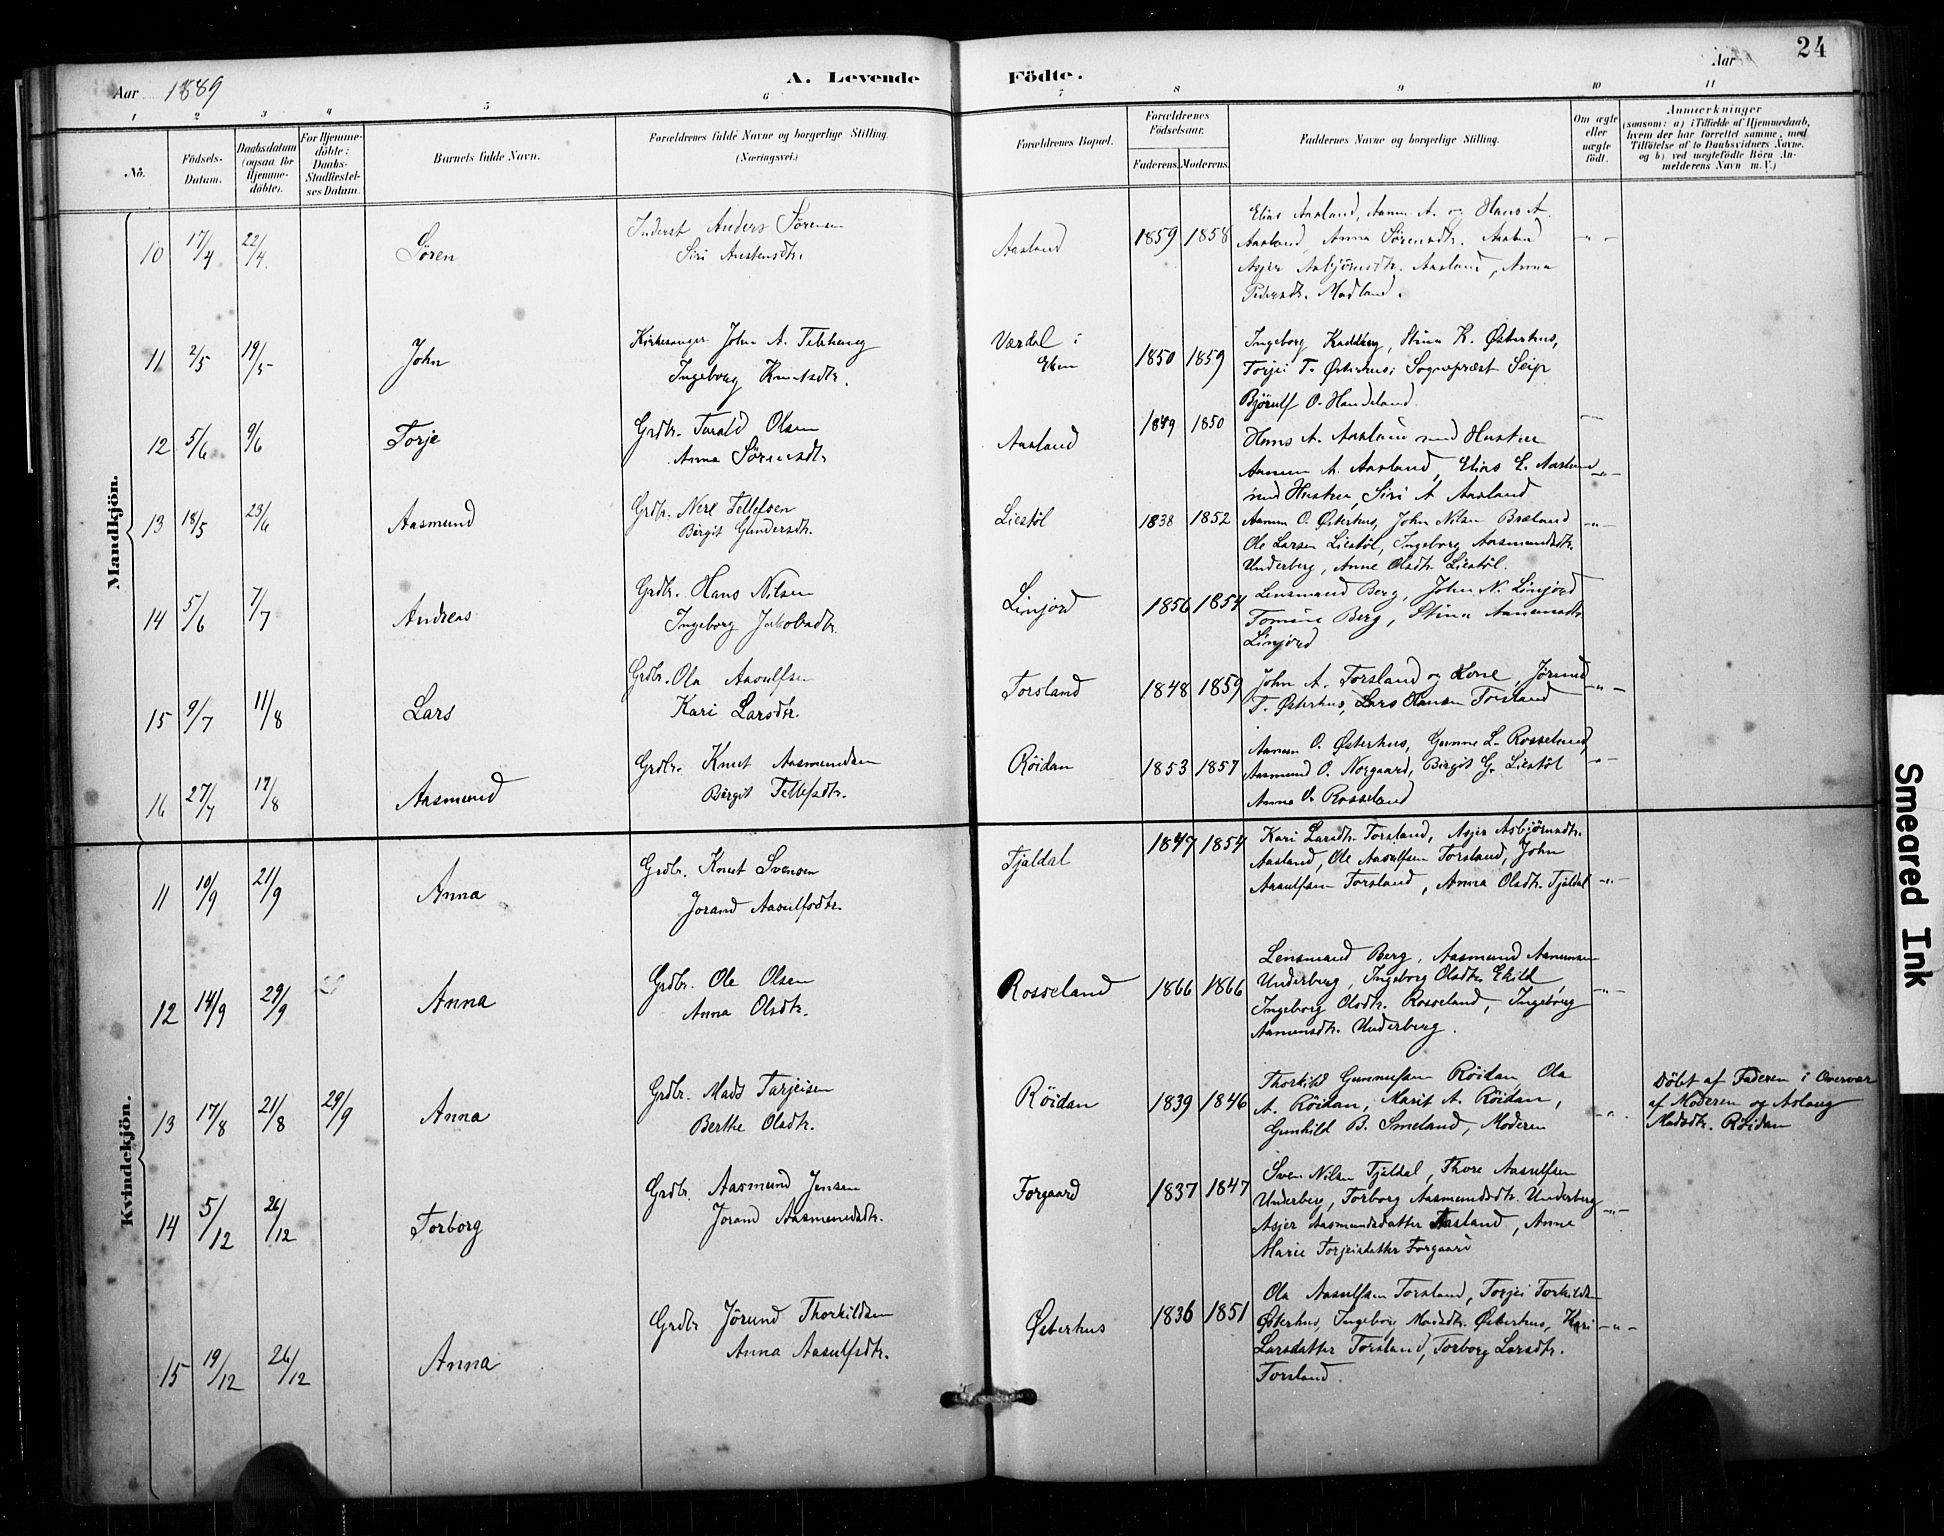 Aar 1889
A. Levende
Födte.
Aar
24
1 2 3 4 5 6 7 8 9 10 11
No.
Födsels-Datum.
Daabsdatum (ogsaa for Hjemme-döbte).
For Hjemme-döbte: Daabs-Stadfæstelses Datum.
Barnets fulde Navn.
Forældrenes fulde Navne og borgerlige Stilling. (Næringsvei.)
Forældrenes Bopæl.
Forældrenes Födselsaar.
Faderens. Moderens.
Faddernes Navne og borgerlige Stilling.
Om ægte eller uægte födt.
Anmerkninger
(saasom: a) i Tilfælde af Hjemmedaab,
hvem der har forrettet samme, med
Tilföielse af to Daabsvidners Navne,
og b) ved uægtefödte Börn An-
melderens Navn m. V.)
Mandkjön.
10 17/4 22/4 Søren
Inderst Anders Sørensen
Siri Austensdtr.
Aasland 1859 1858
Elias Aasland, Aanun A. og Hans A.
Aasland, Anna Sørensdtr. Aasland
Asjer Asbjørnsdtr. Aasland, Anna
Pedersdtr. Modland.
11 2/5 19/5 John
Kirkesanger John A. Tebhaug
Ingeborg Knutsdtr.
Værdal i
Eken
1850 1859
Ingeborg Kaddberg, Stina K. Østerhus,
Torjei T. Østerhus, Sognepræst Seip
Bjørulf O. Handeland
12 5/6 9/6 Torje
Grdbr. Tarald Olsen
Anna Sørensdtr
Aasland 1849 1850
Hans A. Aasland med Hustru
Aanun A. Aasland, Elias E. Aasland
med Hustru, Siri A Aasland
13 18/5 23/6 Aasmund
Grdbr. Nere Tellefsen
Birgit Gundersdtr.
Liestøl 1838 1852
Aanun O. Østerhus, John Nilsen Bræland
Ole Larsen Liestøl, Ingeborg Aasmundsdtr.
Underberg, Anne Olsdtr. Liestøl.
14 5/6 7/7 Andreas
Grdbr. Hans Nilsen
Ingeborg Jakobsdtr.
Linjord 1856 1854
Lensmand Berg, John N. Linjord
Tomine Berg, Stina Aanensdtr
Linjord
15 9/7 11/8 Lars
Grdbr. Ola Aasulfsen
Kari Larsdtr.
Torsland 1848 1859
John A. Torsland og Kone, Jørund
T. Østerhus, Lars Hansen Torsland
16 27/7 17/8 Aasmund
Grdbr. Knut Aasmundsen
Birgit Tellefsdtr.
Røidan 1853 1857
Aanun O. Østerhus, Gunne L. Rosseland
Aasmund O. Norgaard, Birgit G. Liestøl
Anna O. Rosseland
Kvindekjön.
11 10/9 21/9 Anna
Grdbr. Knut Svensen
Jorand Aasulfsdtr.
Tjaldal 1847 1854
Kari Larsdtr. Torsland, Asjer Asbjørnsdtr.
Aasland, Ole Aasulfsen Torsland, John
Aasulfsen Torsland, Anna Olsdtr. Tjaldal
12 14/9 29/9 Anna
Grdbr. Ole Olsen
Anna Olsdtr.
Rosseland 1866 1866
Lensmand Berg, Aasmund Aanunsen
Underberg, Ingeborg Olsdtr. Ekild
Ingeborg Olsdtr. Rosseland, Ingeborg
Aanunsdtr. Underberg.
13 17/8 21/8 29/9 Anna
Grdbr. Mads Tarjeisen
Berthe Olsdtr.
Røidan 1839 1846
Thorkild Gunnufsen Røidan, Ola
A. Røidan, Marit A. Røidan,
Gunhild B. Smeland, Moderen
Døbt af Faderen i Overvær
af Moderen og Aslaug
Madsdtr. Røidan
14 5/12 26/12 Torborg
Grdbr. Aasmund Jensen
Jorand Aasmundsdtr.
Forgaard 1837 1847
Sven Nilsen Tjaldal, Thore Aasulfsen
Underberg, Torborg Aasmundsdtr. Underberg
Asjer Aasmundsdatter Aasland, Anne
Marie Torjeisdatter Forgaard
15 19/12 26/12 Anna
Grdbr Jørund Thorkildsen
Anna Aasulfsdtr.
Østerhus 1836 1851
Ola Aasulfsen Torsland, Torjei Torkilds
Østerhus, Ingeborg Madsdtr. Østerhus, Kari
Larsdatter Torsland, Torborg Larsdtr.
Torsland.
Smeared Ink